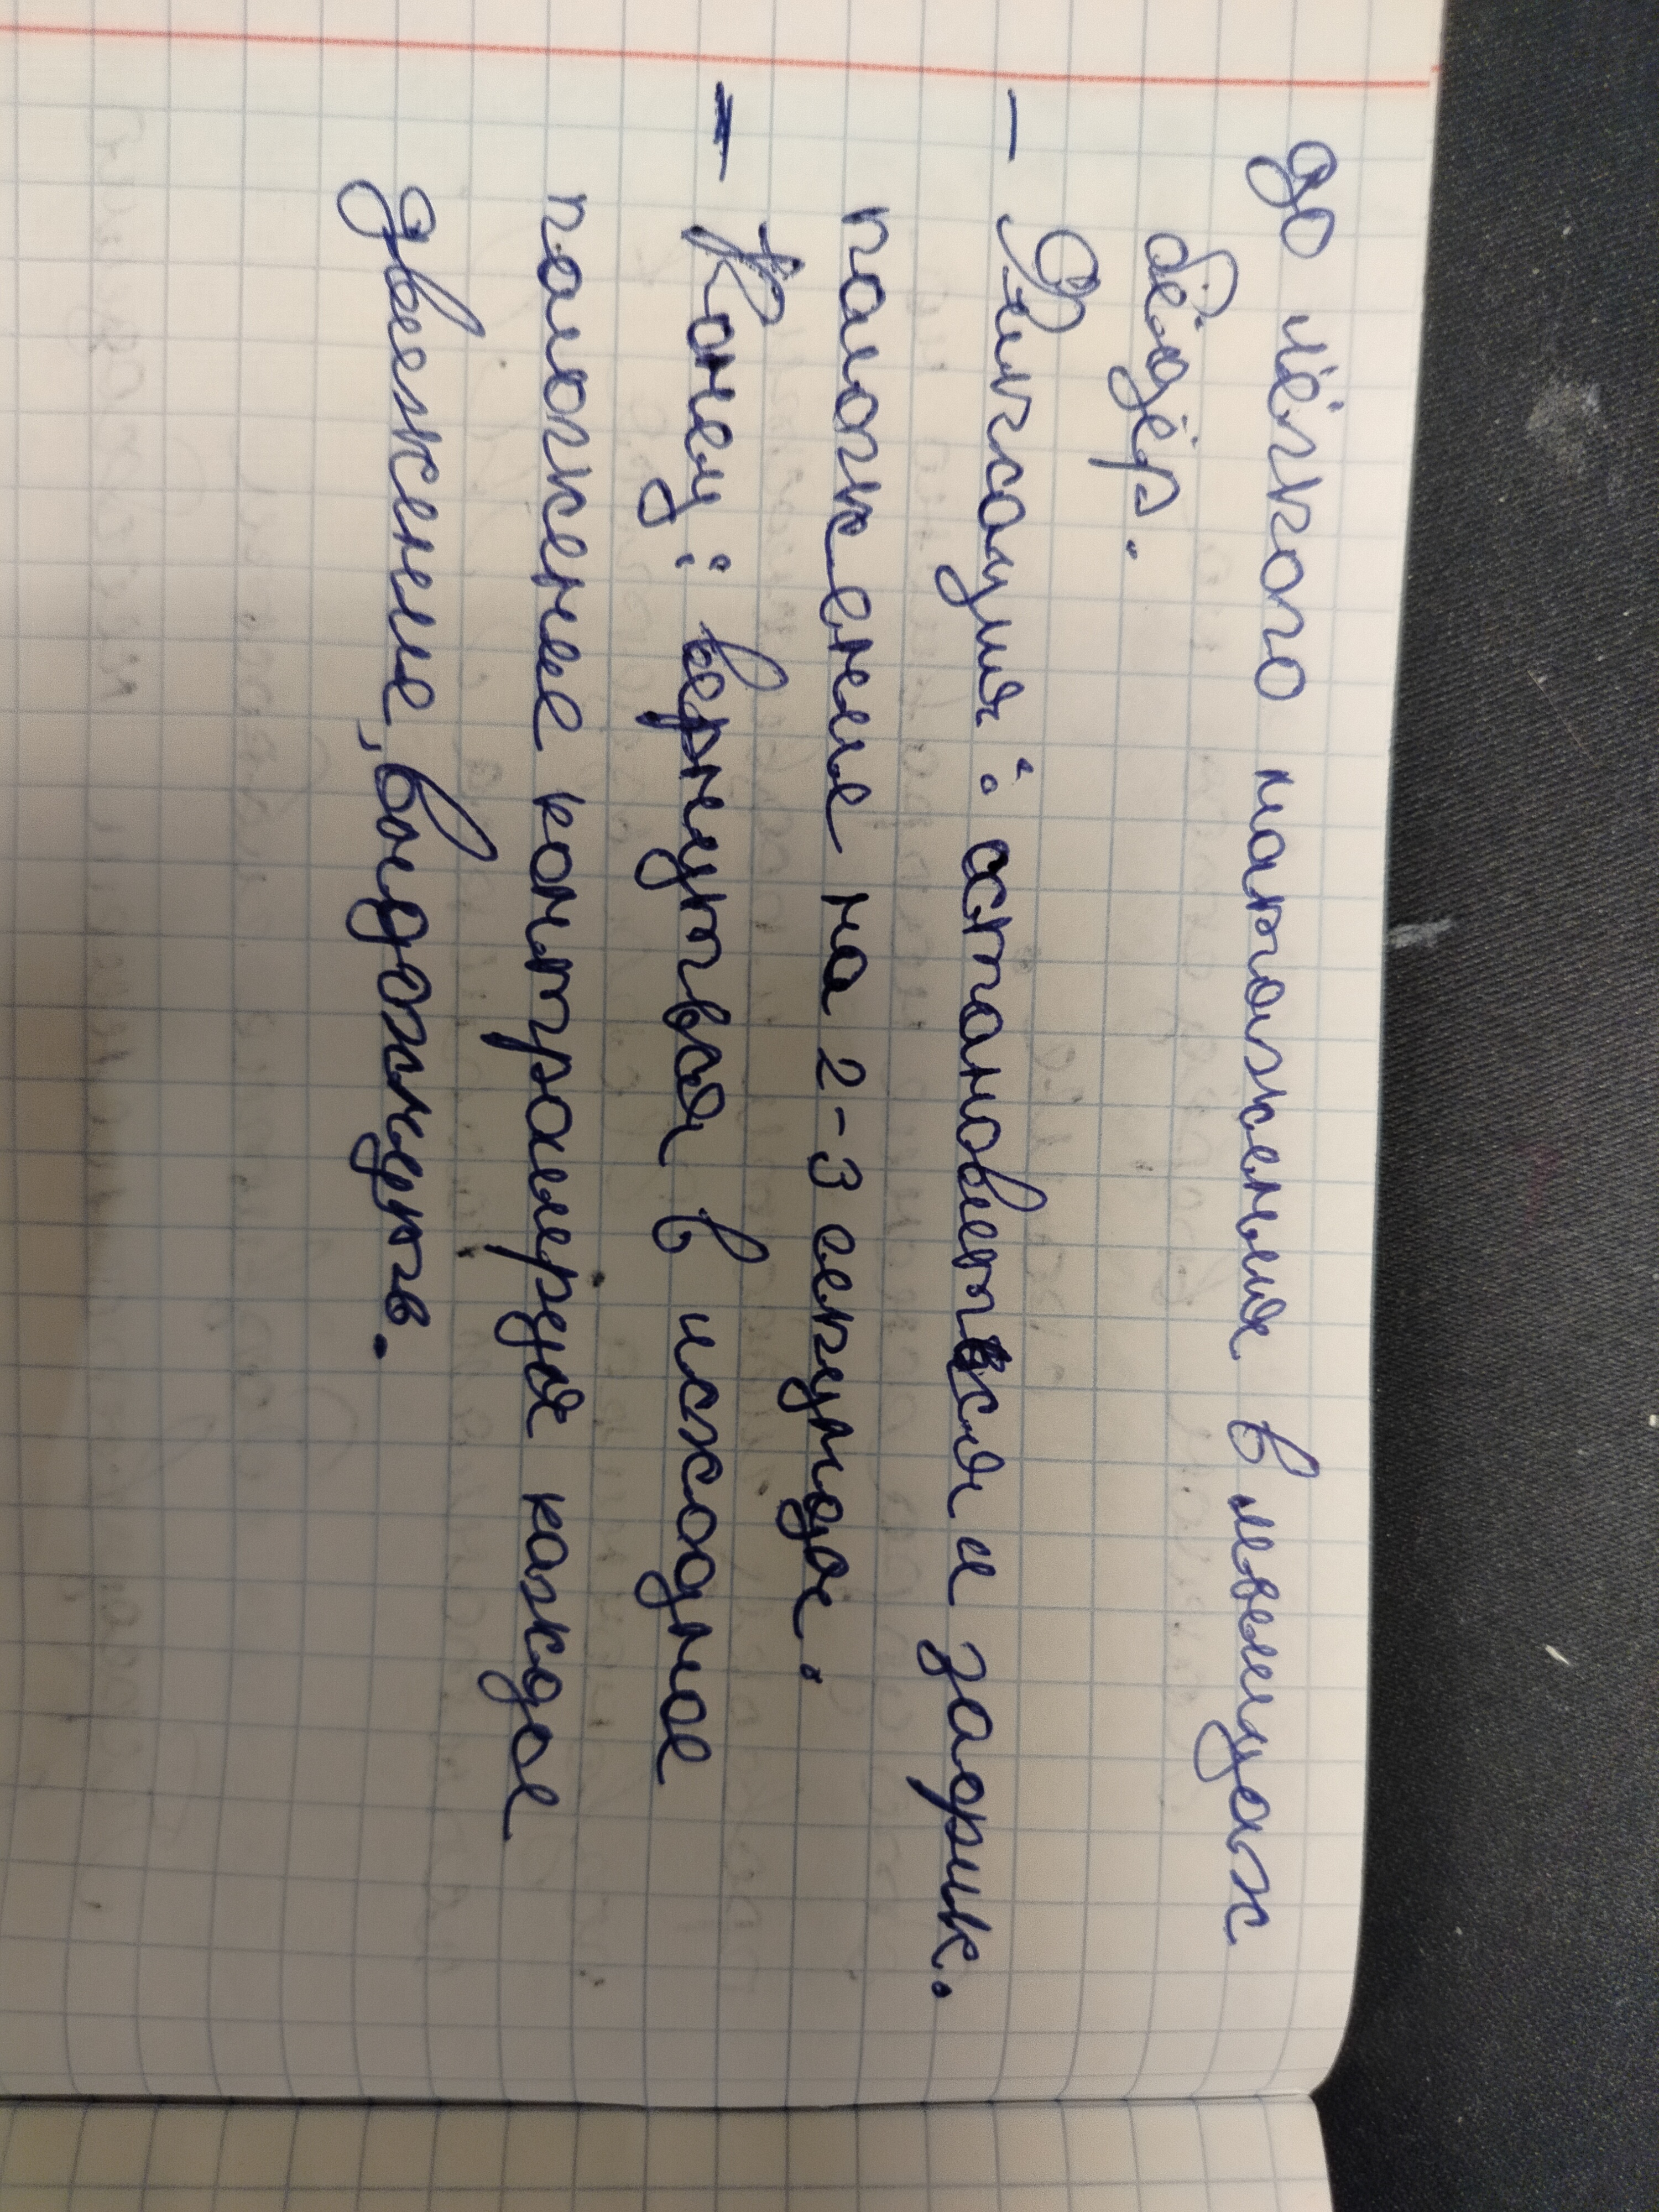 до лёгкого натяжения в мышцах
бёдер.
– Фиксация: остановиться и зафик.
положение на 2-3 секунды.
– Конец: вернуться в исходное
положение контролируя каждое
движение, выдохнуть.